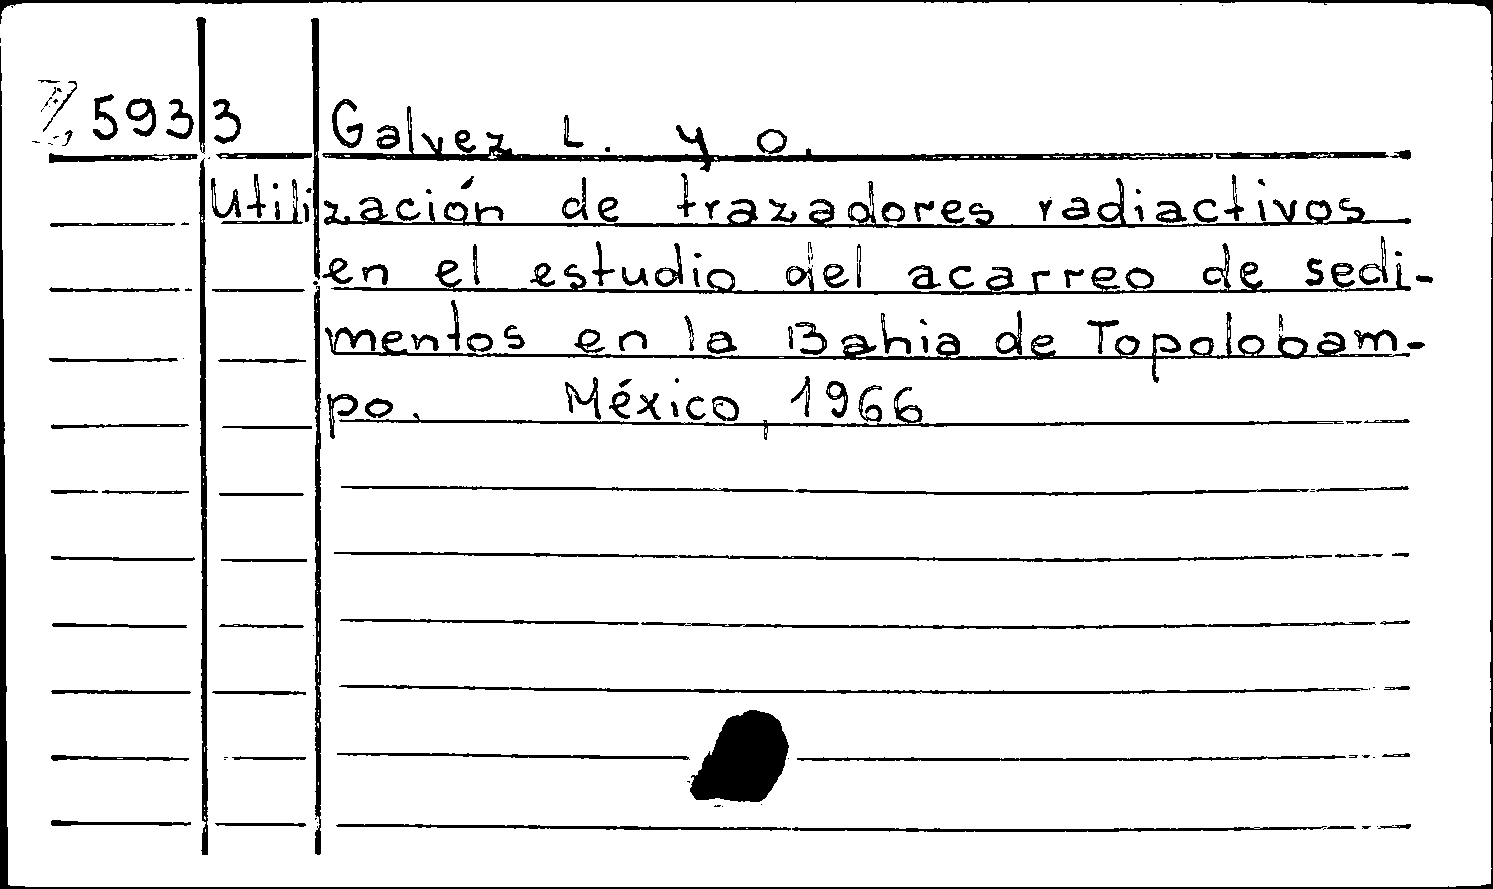 Z 5933 Galvez L. y o.
Utilización de trazadores radiactivos
en el estudio del acarreo de sedi-
mentos en la Bahia de Topolobam-
po. México, 1966